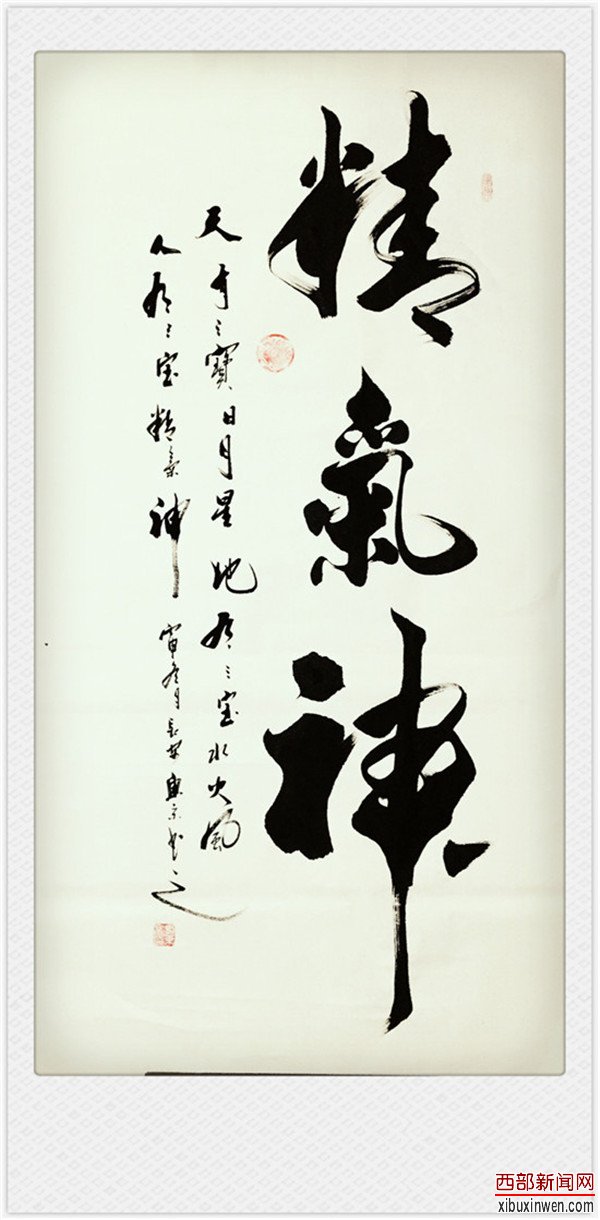 精氣神
天有三寶日月星地有三宝水火風
人有三宝精氣神 冬月 书之
西部新闻网
xibuxinwen.com